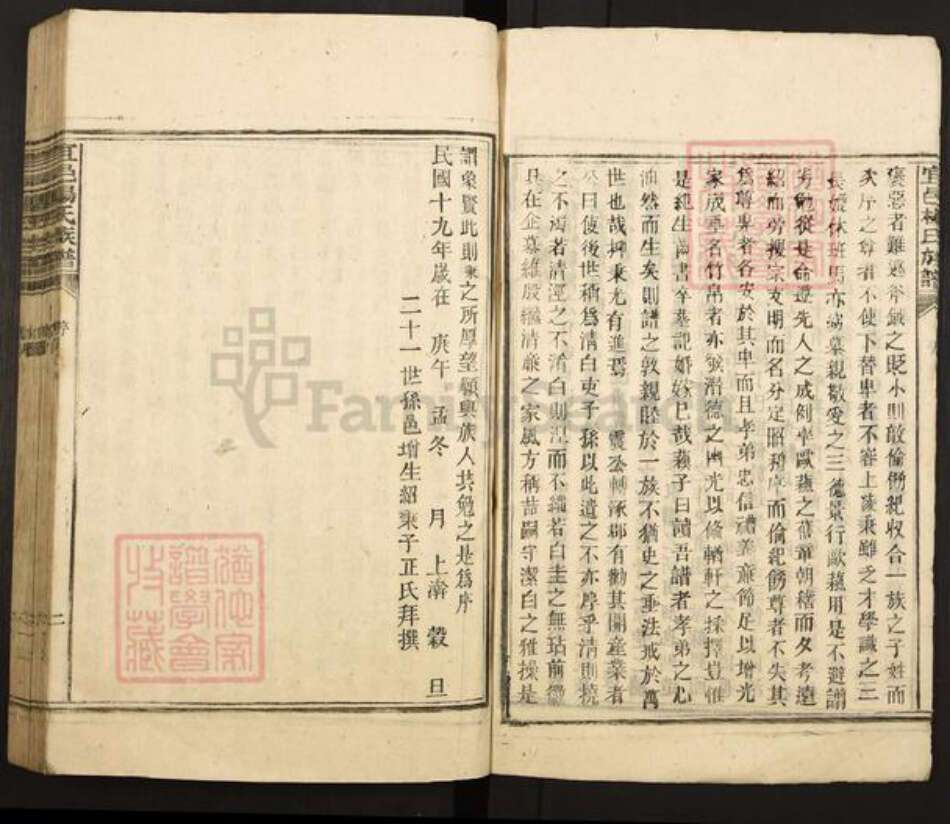 宜邑楊氏族譜
褒惡者雖遜斧鉞之貶小則敵倫傷紀收合一族之子姓而
次序之尊者不使下替卑者不容上凌秉雖乏才學識之三
長媛休班馬亦竊慕親敬愛之三德景行歐蘇用是不避謭
劣勉從是命遵先人之成例率歐蘇之舊章朝稽而夕考遠
紹而旁搜宗支明而名分定昭穆序而倫紀飭尊者不失其
為尊卑者各安於其卑而且孝弟忠信禮義廉節足以增光
家成專名竹帛者亦發潛德之幽光以俟輶軒之採擇豈惟
是紀生卒書卒墓記婚嫁已哉蘇子曰讀吾譜者孝弟之心
油然而生矣則譜之敦親睦於一族不猶史之垂法戒於萬
世也哉抑秉尤有進焉 震公轉涿郡有勸其開產業者
公曰使後世稱為清白吏子孫以此遺之不亦厚乎清則撓
之不濁若清涇之不淆白則涅而不緇若白圭之無玷前徽
具在企慕維殷繼清廉之家風方稱喆嗣守潔白之雅操是
謂象賢此則秉之所厚望願與族人共勉之是為序
民國十九年歲在 庚午 孟冬 月 上澣 穀 旦
二十一世孫邑增生紹秉子正氏拜撰
宜邑楊氏族譜
序
二
猶他家
譜學會
收藏
FamilySearch